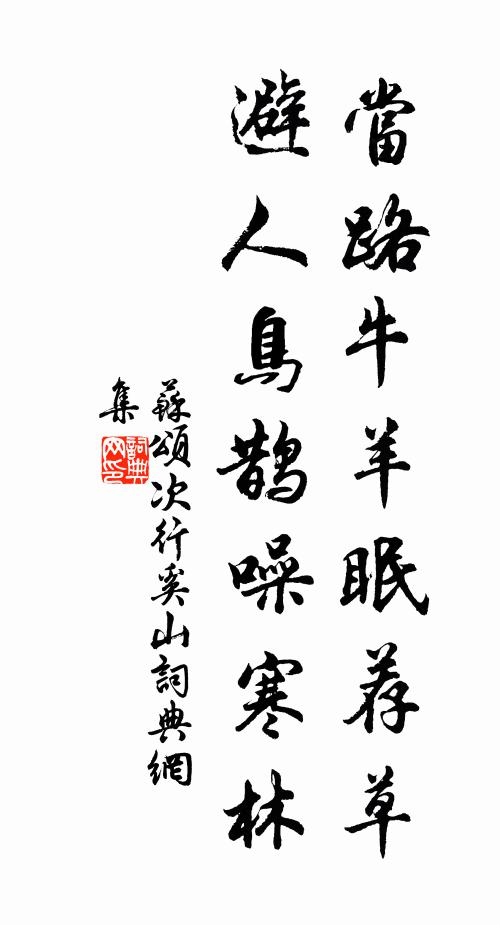 當路牛羊眠荐草
避人鳥鵲噪寒林
蘇頌次行奚山詞典網
集
詞典网印